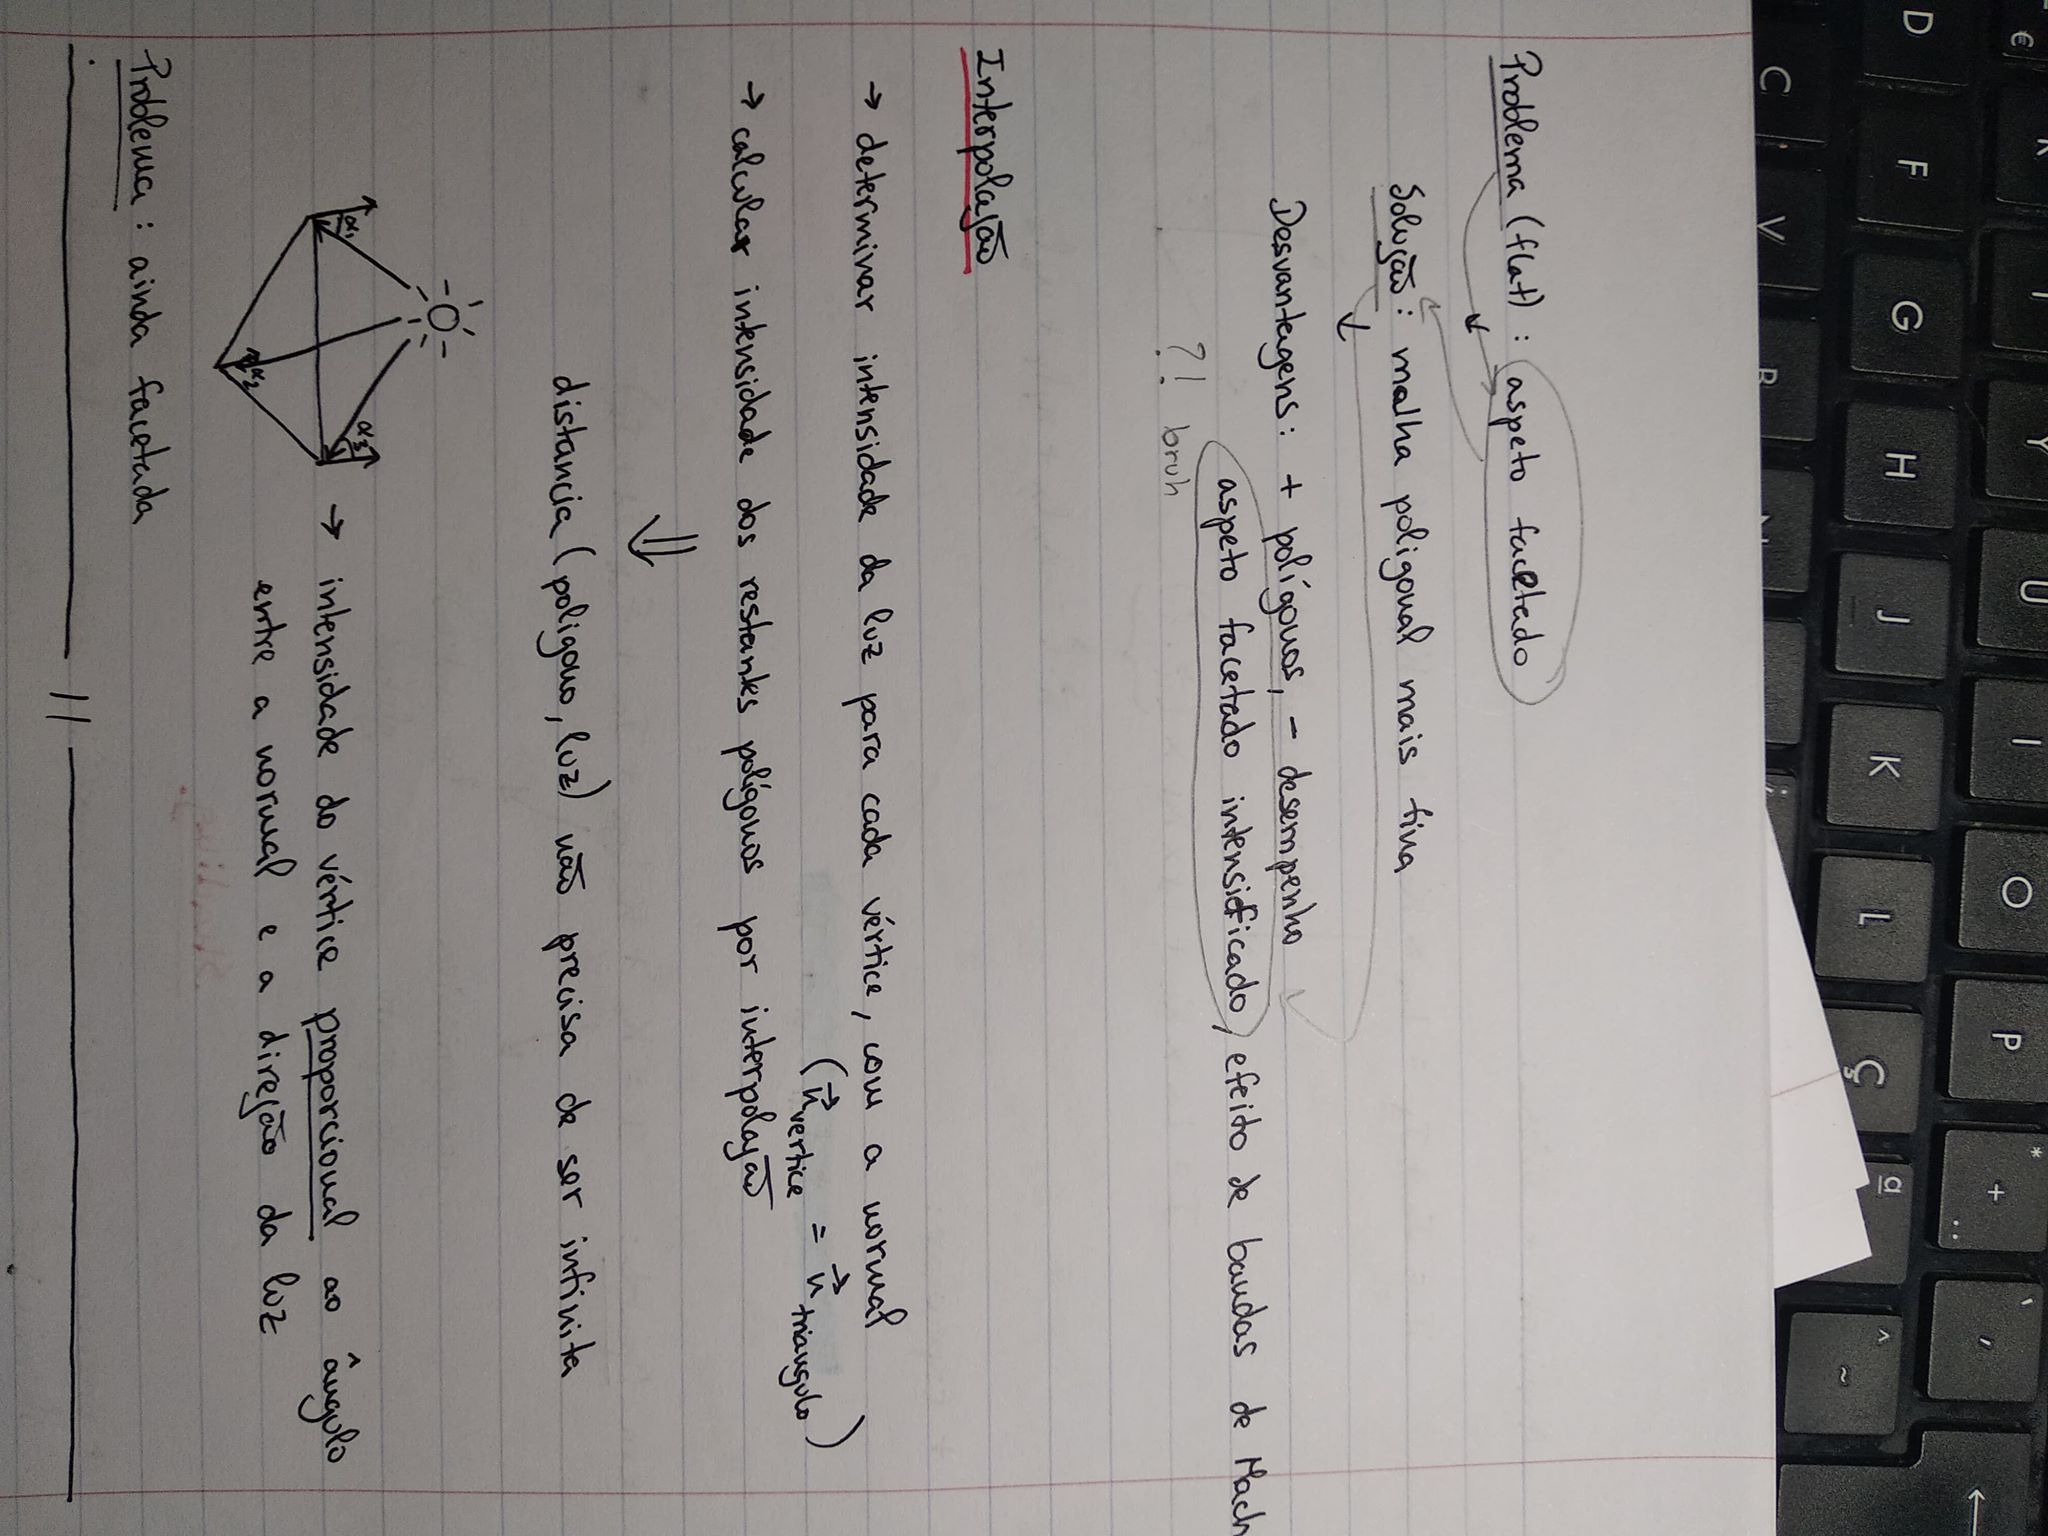 € R T Y U I O P * + ¨ ` ´ ←
D F G H J K L Ç ª ^ ~
C V B N ¿
Problema (flat) : aspeto facetado
Solução : malha poligonal mais fina
Desvantagens : + polígonos, - desempenho
aspeto facetado intensificado, efeito de bandas de Mach
?! bruh
Interpolação
→ determinar intensidade da luz para cada vértice, com a normal
(n⃗ vertice = n⃗ triangulo)
→ calcular intensidade dos restantes polígonos por interpolação
⇓
distancia (poligono, luz) não precisa de ser infinita
α₁ α₃
→ intensidade do vértice proporcional ao ângulo
α₂ entre a normal e a direção da luz
Problema : ainda facetada
//